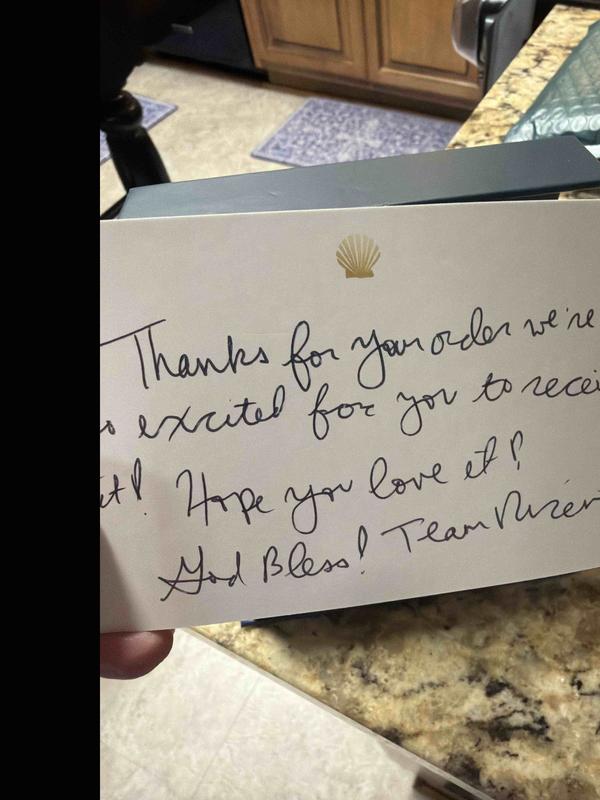 Thanks for your order we're
so excited for you to recei
it! Hope you love it!
God Bless! Team